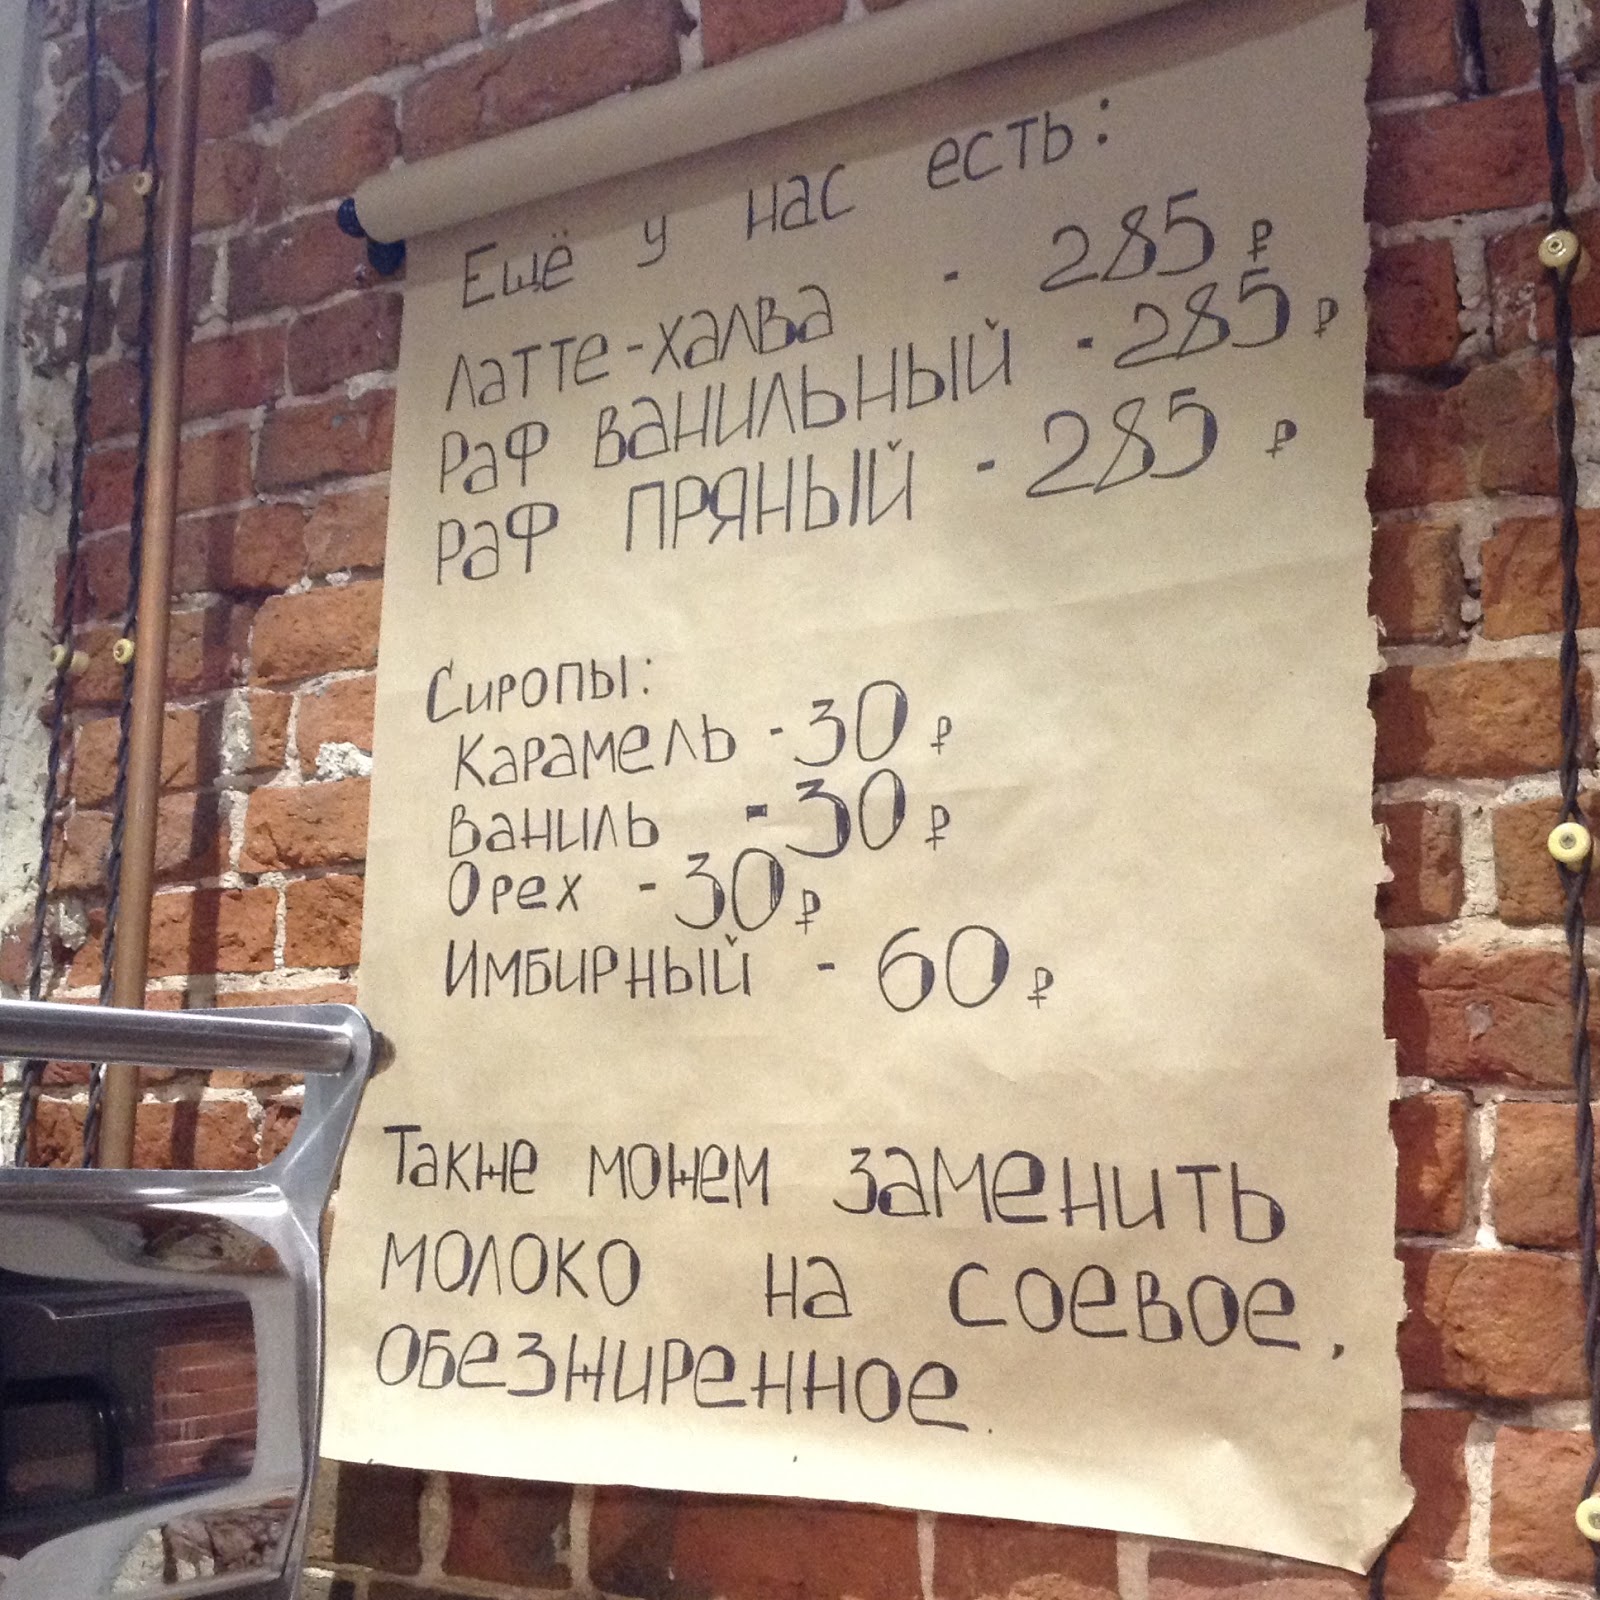 Ещё у нас есть:
Латте-халва - 285 ₽
Раф ванильный - 285 ₽
Раф пряный - 285 ₽
Сиропы:
Карамель - 30 ₽
Ваниль - 30 ₽
Орех - 30 ₽
Имбирный - 60 ₽
Также можем заменить
молоко на соевое,
обезжиренное.